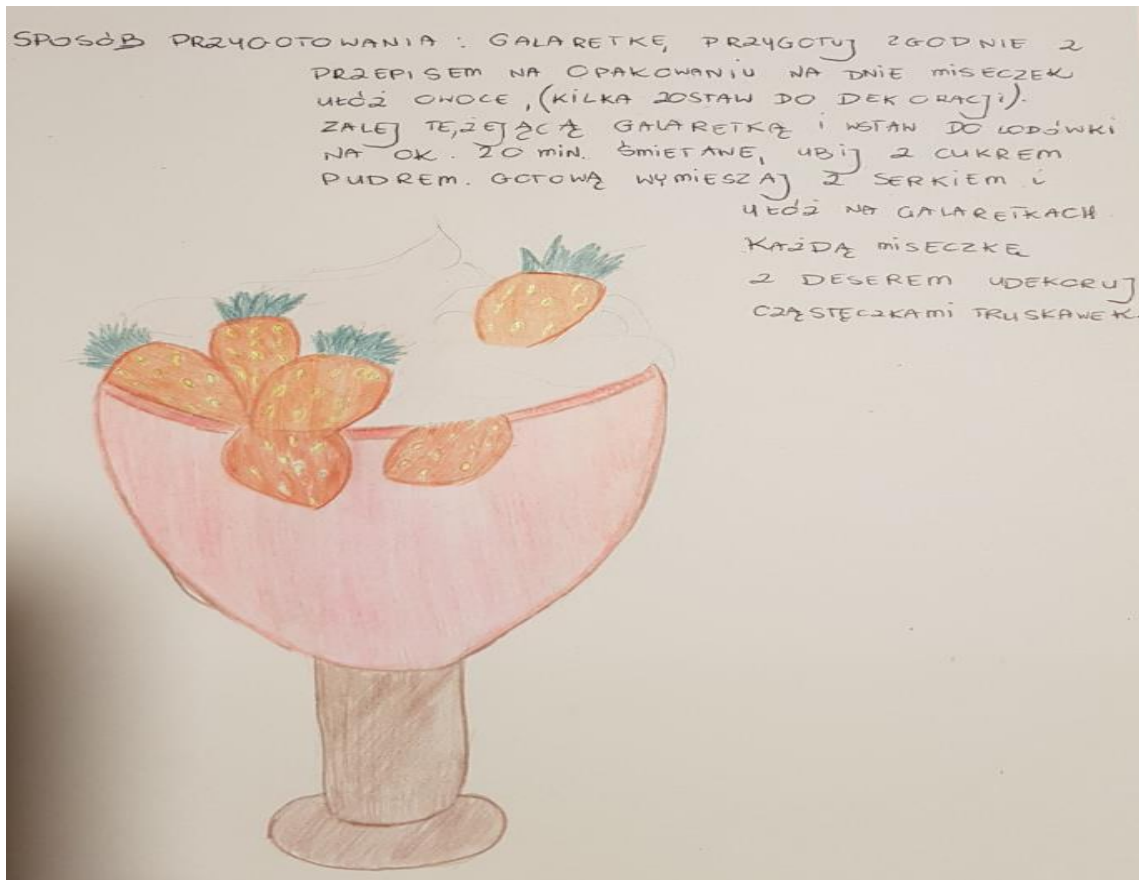 SPOSÓB PRZYGOTOWANIA: GALARETKĘ PRZYGOTUJ ZGODNIE Z
PRZEPISEM NA OPAKOWANIU NA DNIE MISECZEK
UŁÓŻ OWOCE, (KILKA ZOSTAW DO DEKORACJI).
ZALEJ TĘŻEJĄCĄ GALARETKĄ I WSTAW DO LODÓWKI
NA OK. 20 MIN. ŚMIETANĘ UBIJ Z CUKREM
PUDREM. GOTOWĄ WYMIESZAJ Z SERKIEM I
UŁÓŻ NA GALARETKACH
KAŻDĄ MISECZKĘ
Z DESEREM UDEKORUJ
CZĄSTĘCZKAMI TRUSKAWEK.